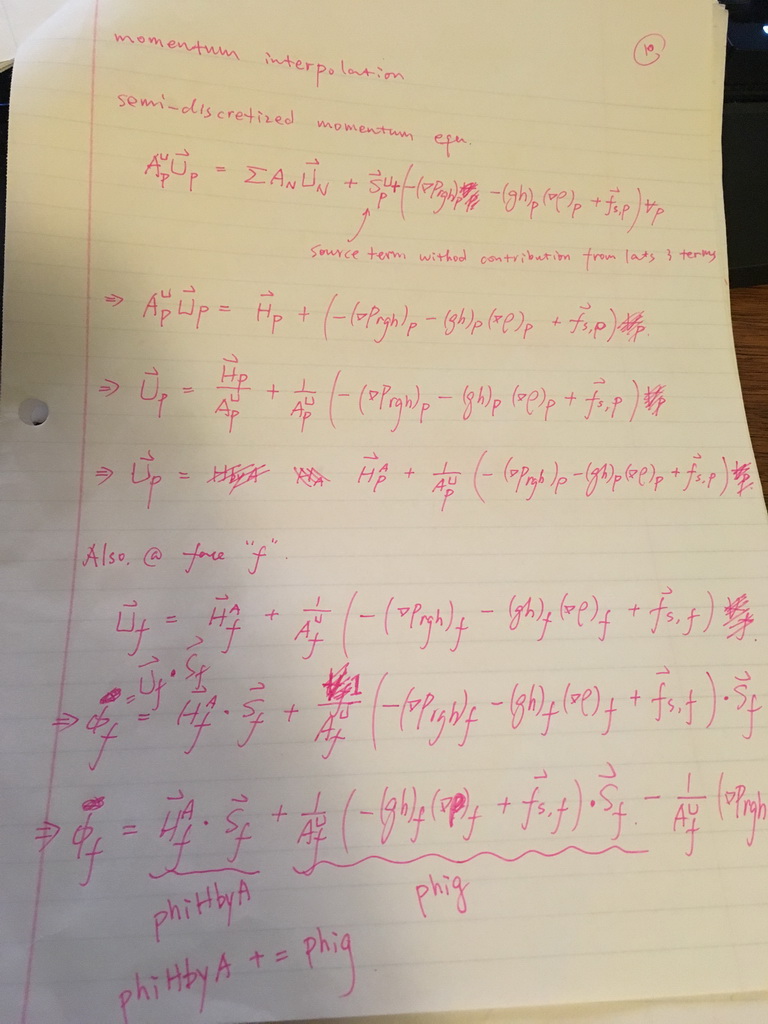 10
momentum interpolation
semi-discretized momentum equ.
A_p^U U⃗_p = ΣA_N U⃗_N + S⃗_p^U + (-(∇P_rgh)_p - (gh)_p (∇ρ)_p + f⃗_s,p) ∀_p
source term withod contribution from lats 3 terms
⇒ A_p^U U⃗_p = H⃗_p + (-(∇P_rgh)_p - (gh)_p (∇ρ)_p + f⃗_s,p)
⇒ U⃗_p = H⃗_p / A_p^U + 1/A_p^U (-(∇P_rgh)_p - (gh)_p (∇ρ)_p + f⃗_s,p)
⇒ U⃗_p = H⃗_p^A + 1/A_p^U (-(∇P_rgh)_p - (gh)_p (∇ρ)_p + f⃗_s,p)
Also, @ face "f".
U⃗_f = H⃗_f^A + 1/A_f^U (-(∇P_rgh)_f - (gh)_f (∇ρ)_f + f⃗_s,f)
= U⃗_f · S⃗_f
⇒ ϕ_f = H⃗_f^A · S⃗_f + 1/A_f^U (-(∇P_rgh)_f - (gh)_f (∇ρ)_f + f⃗_s,f) · S⃗_f
⇒ ϕ_f = H⃗_f^A · S⃗_f + 1/A_f^U (-(gh)_f (∇ρ)_f + f⃗_s,f) · S⃗_f - 1/A_f^U (∇P_rgh
phiHbyA phig
phiHbyA += phig